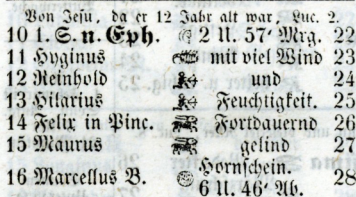 Von Jesu, da er 12 Jahr alt war, Luc. 2.
10 1. S. n. Eph. 2 U. 57′ Mrg. 22
11 Hyginus mit viel Wind 23
12 Reinhold und 24
13 Hilarius Feuchtigkeit. 25
14 Felix in Pinc. Fortdauernd 26
15 Maurus gelind 27
16 Marcellus B. Hornschein. 6 U. 46′ Ab. 28